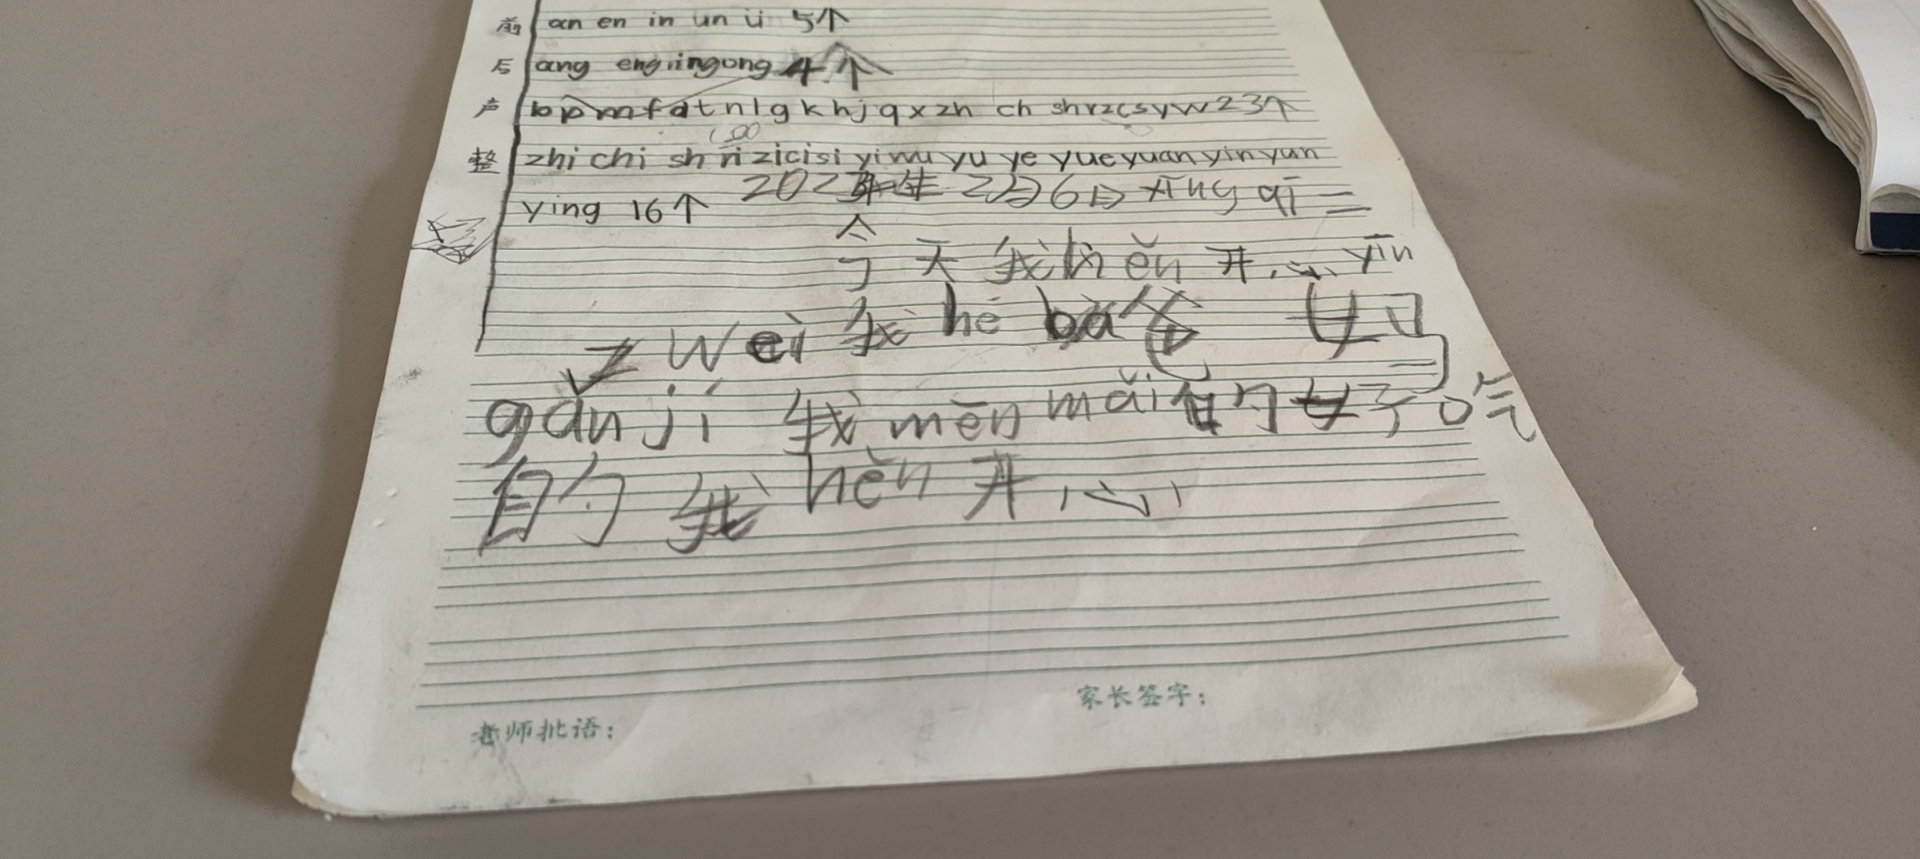 前 an en in un ü 5个
后 ang eng ing ong 4个
声 b p m f d t n l g k h j q x zh ch sh r z c s y w 23个
整 zhi chi sh ri zi ci si yi wu yu ye yue yuan yin yun
ying 16个
2月6日 xīng qī 三
今天 我 hěn 开心 yīn
wei 我 hé bà 爸
gǎn jí 我 mēn mǎi 的 好 吃
的 我 hěn 开心
老师批语： 家长签字：